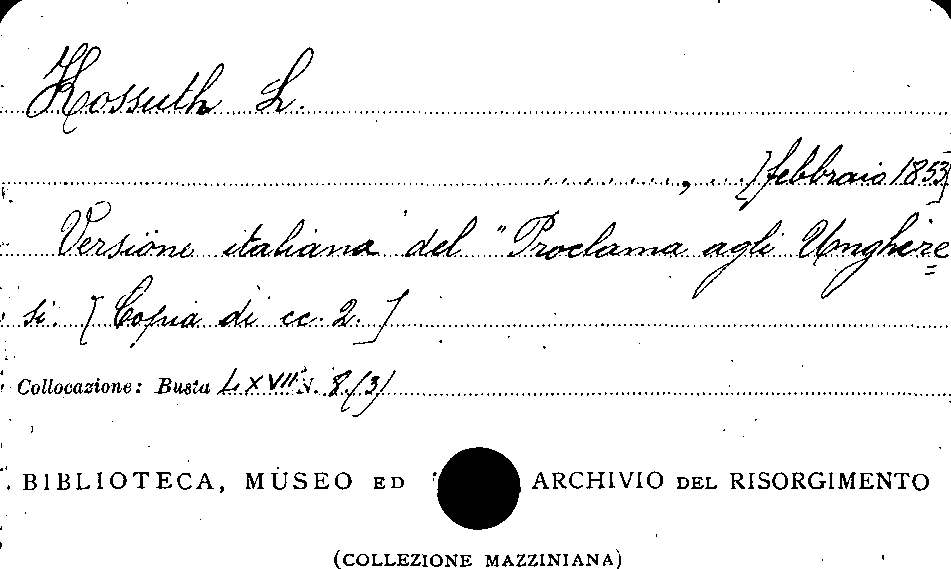 Kossuth L.
........, ...[febbraio 1853]
Versione italiana del "Proclama agli Unghere=
si. [Copia di cc. 2.]
Collocazione: Busta LXVII N. 8.(3)
BIBLIOTECA, MUSEO ED ARCHIVIO DEL RISORGIMENTO
(COLLEZIONE MAZZINIANA)